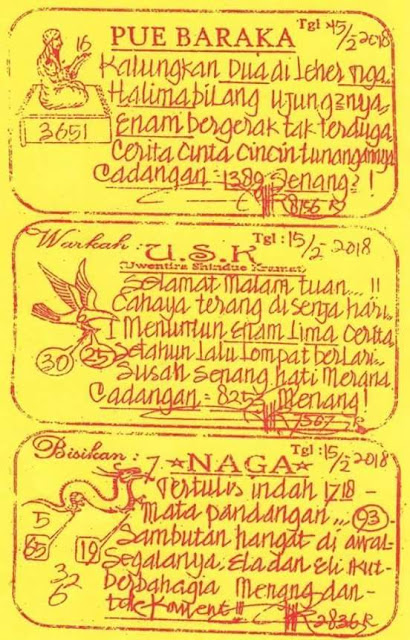 PUE BARAKA
Tgl : 15/2 2018
16
3651
Kalungkan Dua di Leher Tiga.
Halima bilang ujung2nya.
Enam bergerak tak terduga
Cerita Cinta Cincin tunangannya
Cadangan = 1389 Senang? !
8156 R
Warkah : U.S.K
Tgl : 15/2 - 2018
(Uwentira Shindue Kramat)
Selamat malam tuan... !!
Cahaya terang di senja hari..
Menuntun enam Lima Cerita
30 25
Setahun Lalu Lompat berlari..
Susah Senang hati Merana
Cadangan = 8253 Menang!
7567 R
Bisikan : 7. NAGA
Tgl : 15/2 2018
Tertulis indah 1718 -
Mata pandangan ... 93 -
5
65 19
Sambutan hangat di awal-
Segalanya. Ela dan Eli ikut-
3 32
6
berbahagia Menang dan-
tak Koment !!!
2836 R